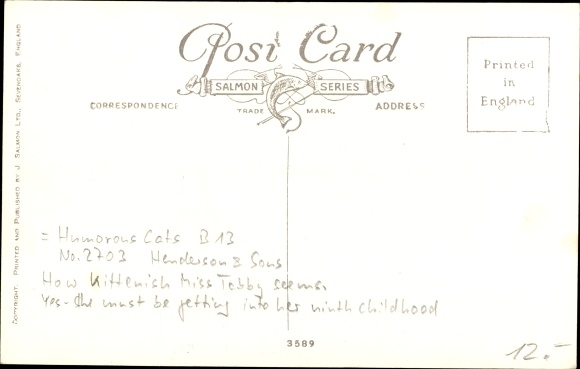 Post Card
SALMON SERIES
TRADE MARK.
CORRESPONDENCE
ADDRESS
Printed
in
England
COPYRIGHT. PRINTED AND PUBLISHED BY J. SALMON LTD., SEVENOAKS, ENGLAND
= Humorous Cats B 13
No. 2703 Henderson & Sons
How kittenish Miss Tabby seems.
Yes - She must be getting into her ninth childhood
3589
12.-